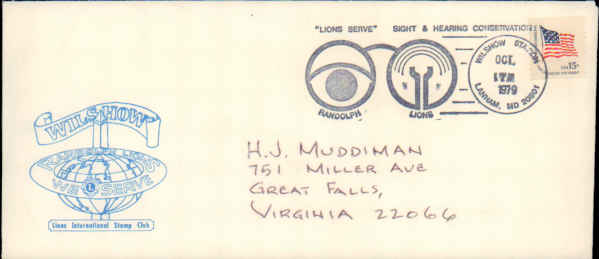 "LIONS SERVE" SIGHT & HEARING CONSERVATION
RANDOLPH
LIONS
WILSHOW STATION
OCT.
1979
LANHAM, MD 20801
USA 15c
WILSHOW
WE SERVE
Lions International Stamp Club
H.J. MUDDIMAN
751 MILLER AVE
GREAT FALLS,
VIRGINIA 22066